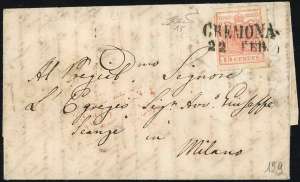 CREMONA
22 FEB.
15 CENTES.
Al Pregiat mo Signore
L'Egregio Sigr Avv. Giuseppe
in
Milano
159